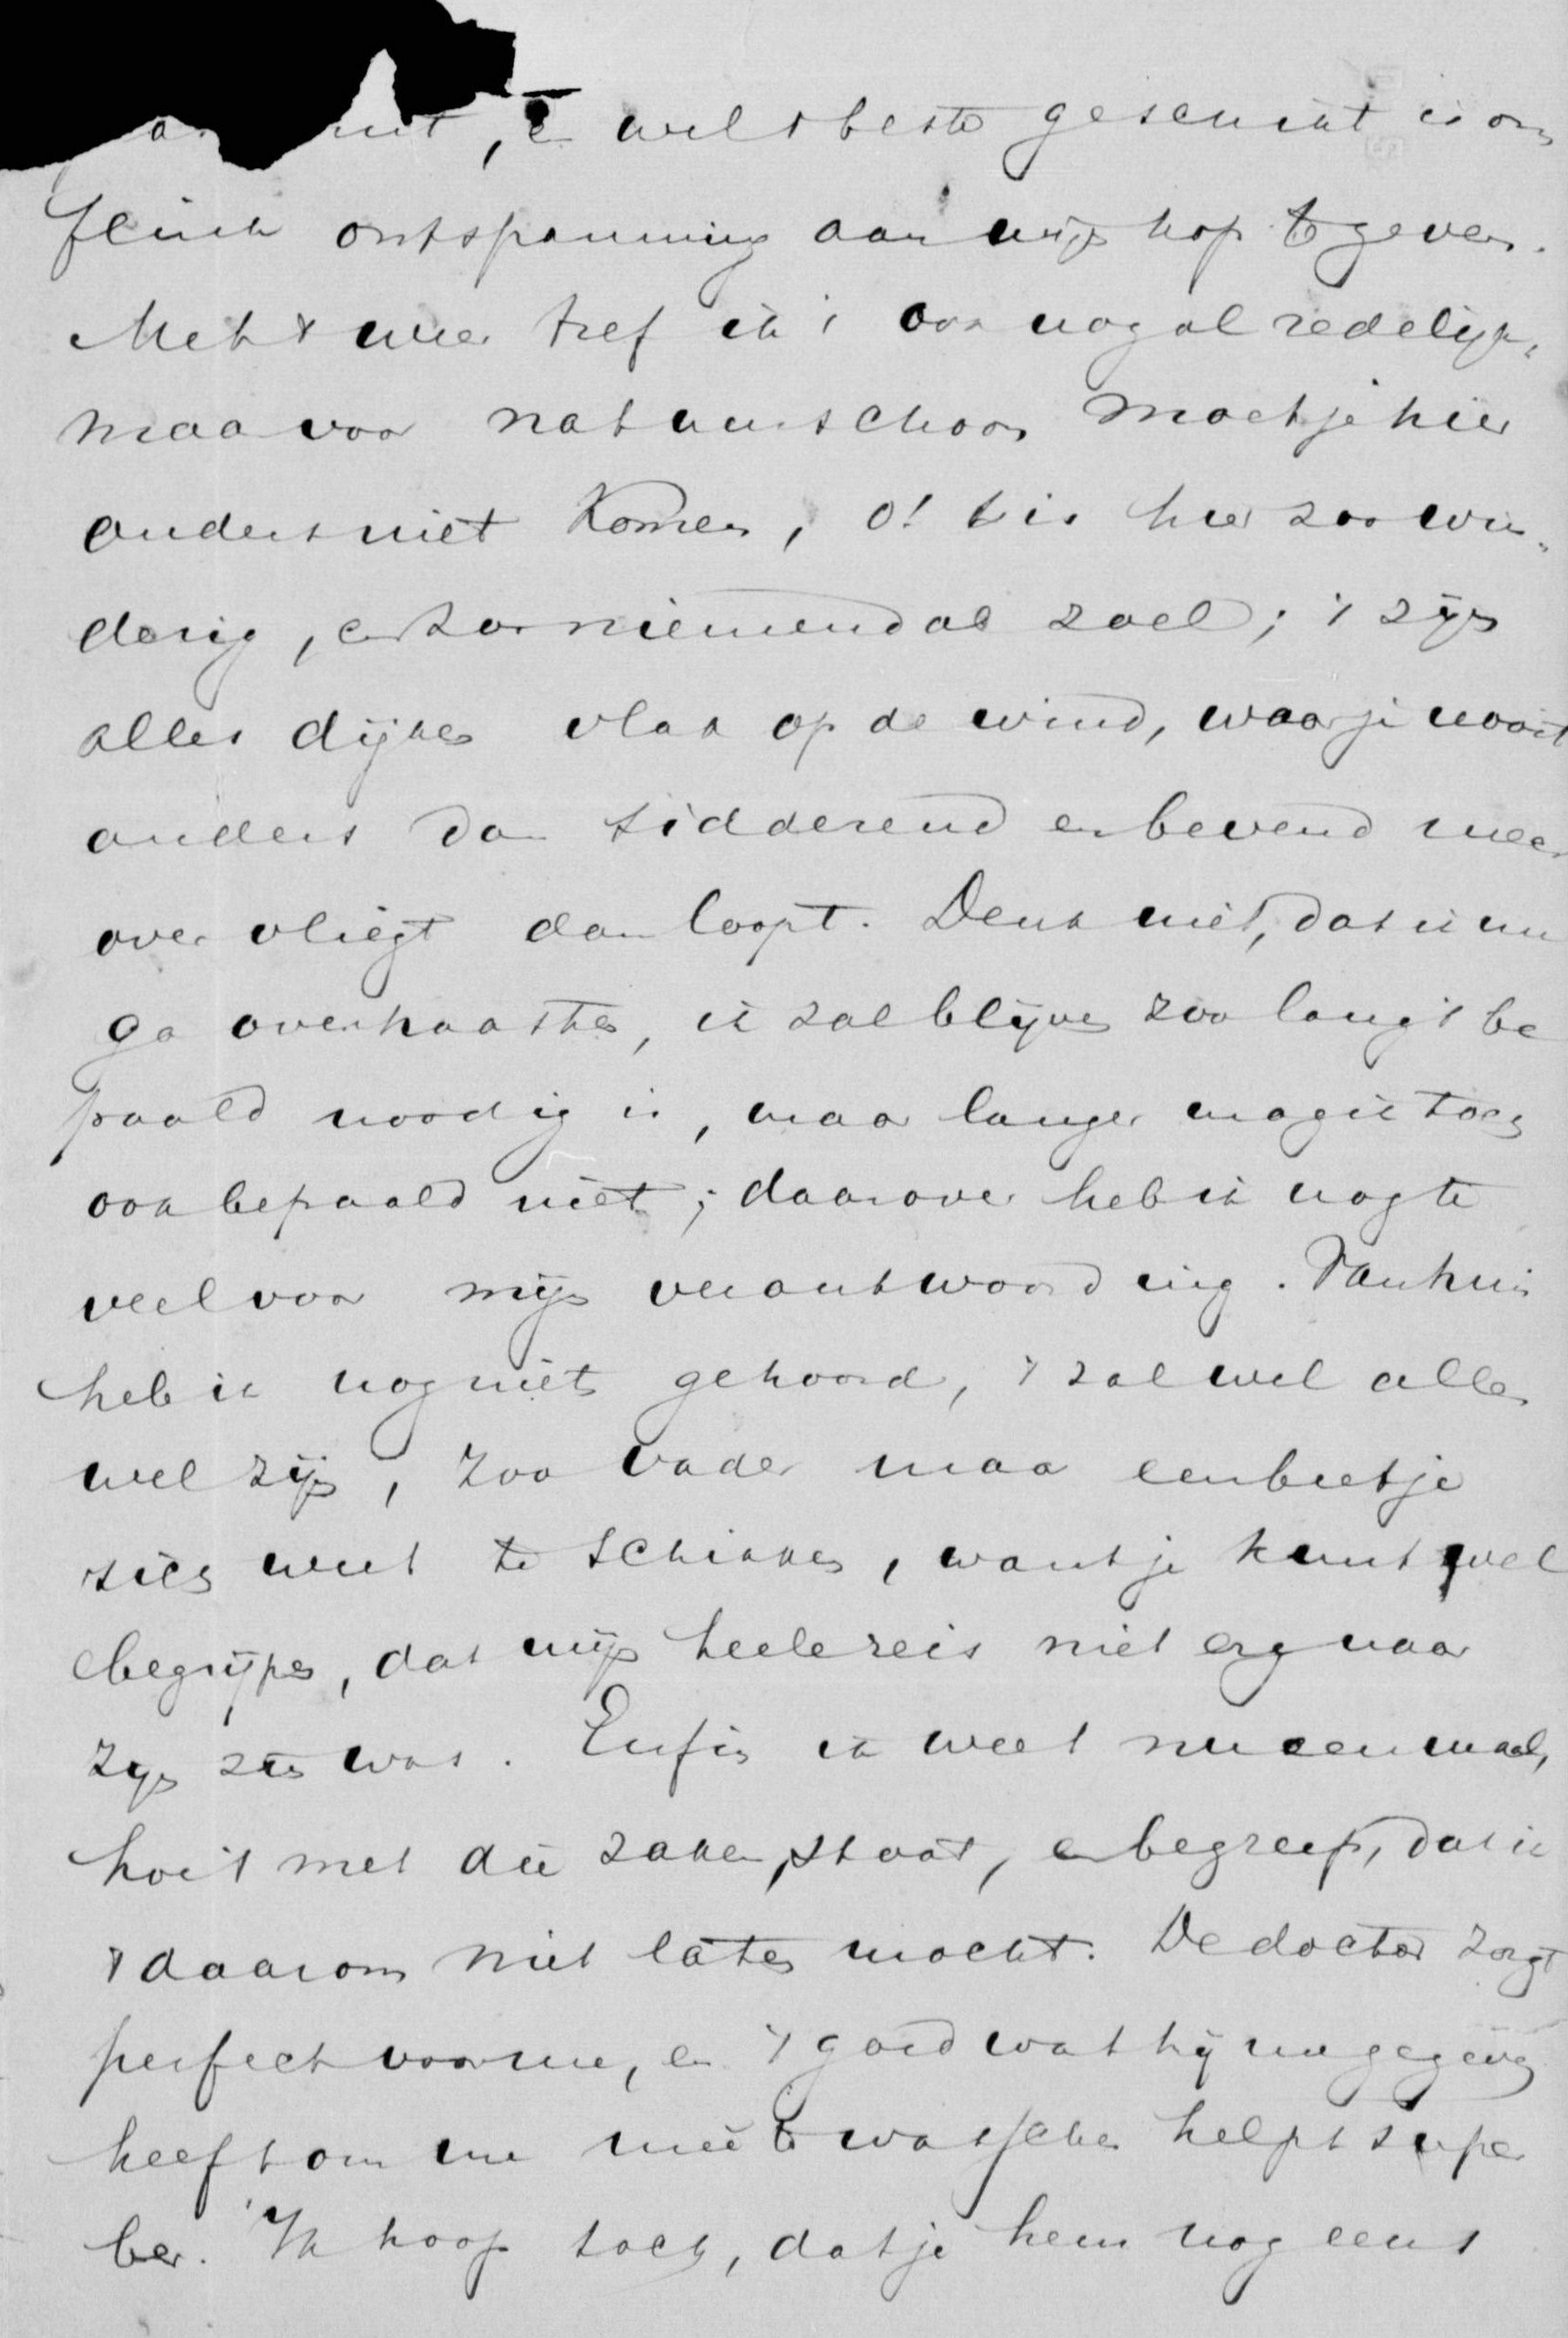 , en wel 't beste geschikt is om
flink ontspanning aan mijn kop te geven.
Met 't weer tref ik 't ook nogal redelijk,
maar voor natuurschoon moet je hier
anders niet komen, o! 't is hier zoo win-
derig, en zoo niemendal zoel; 't zijn
alles dijken vlak op de wind, waar je nooit
anders dan sidderend en bevend meer
over vliegt dan loopt. Denk niet, dat ik nu
ga overhaasten, ik zal blijven zoo lang 't be
paald noodig is, maar langer mag ik toch
ook bepaald niet; daarover heb ik nog te
veel voor mijn verantwoording. Van huis
heb ik nog niets gehoord, 't zal wel alles
wel zijn, zoo Vader maar een beetje
zich weet te schikken, want je kunt wel
begrijpen, dat mijn heele reis niet erg naar
zijn zin was. Enfin ik weet nu eenmaal,
hoe 't met die zaken staat, en begreep, dat ik
't daarom niet laten mocht. De doctor zorgt
perfect voor me, en 't goed wat hij me gegeven
heeft om me mee te wasschen helpt super
be. Ik hoop toch, dat je hem nog eens